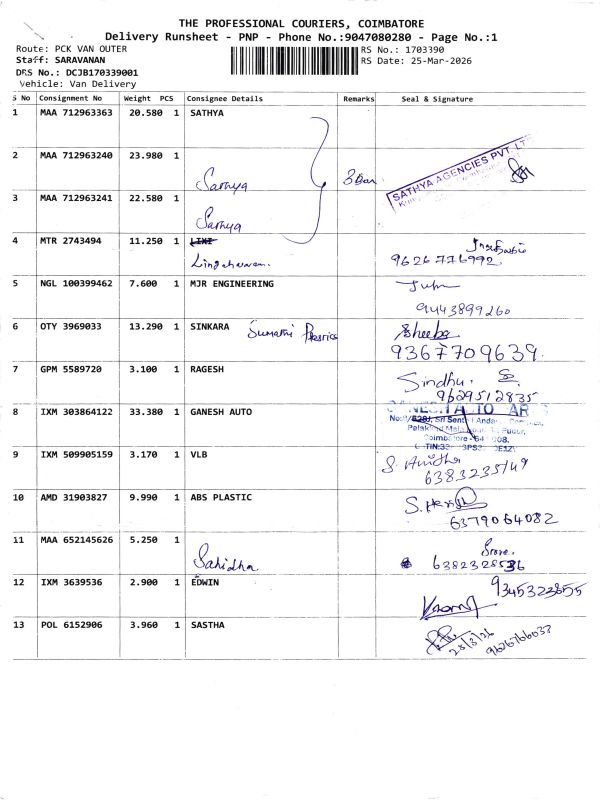 THE PROFESSIONAL COURIERS, COIMBATORE
Delivery Runsheet - PNP - Phone No.:9047080280 - Page No.:1
Route: PCK VAN OUTER
RS No.: 1703390
Staff: SARAVANAN
RS Date: 25-Mar-2026
DRS No.: DCJB170339001
Vehicle: Van Delivery
S No Consignment No Weight PCS Consignee Details Remarks Seal & Signature
1 MAA 712963363 20.580 1 SATHYA
2 MAA 712963240 23.980 1
Sathya 3 Box
SATHYA AGENCIES PVT. LT
3 MAA 712963241 22.580 1
Sathya
4 MTR 2743494 11.250 1
Lingeshwaran. 9626776992
5 NGL 100399462 7.600 1 MJR ENGINEERING
9443899260
6 OTY 3969033 13.290 1 SINKARA Sumathi Sheeba
9367709639.
7 GPM 5589720 3.100 1 RAGESH
Sindhu. S.
9629512835
8 IXM 303864122 33.380 1 GANESH AUTO
Coimbatore
9 IXM 509905159 3.170 1 VLB
10 AMD 31903827 9.990 1 ABS PLASTIC
6379064082
11 MAA 652145626 5.250 1
Sahidha
12 IXM 3639536 2.900 1 EDWIN
9345323855
13 POL 6152906 3.960 1 SASTHA
9626766033